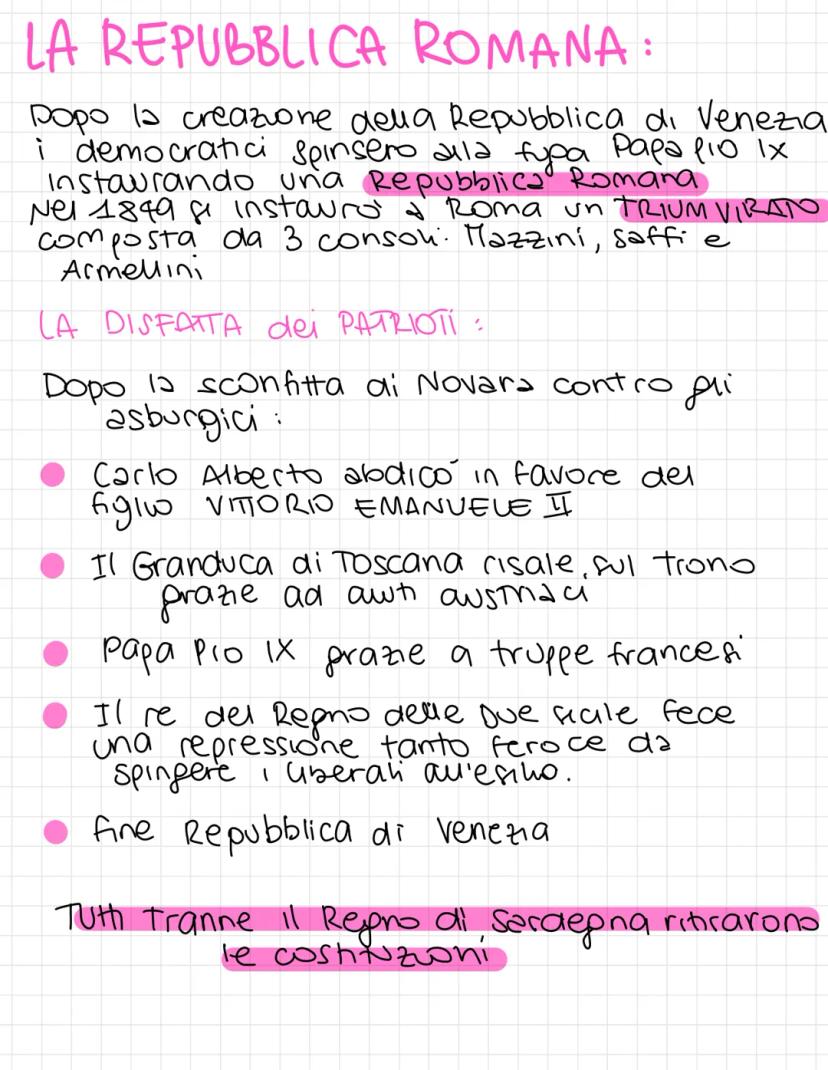 LA REPUBBLICA ROMANA:
Dopo la creazione della Repubblica di Venezia
i democratici spinsero alla fuga Papa Pio IX
instaurando una Repubblica Romana
Nel 1849 si instaurò a Roma un TRIUMVIRATO
composta da 3 consoli: Mazzini, Saffi e
Armellini
LA DISFATTA dei PATRIOTI:
Dopo la sconfitta di Novara contro gli
asburgici:
Carlo Alberto abdicò in favore del
figlio VITTORIO EMANUELE II
Il Granduca di Toscana risale sul trono
grazie ad aiuti austriaci
Papa Pio IX grazie a truppe francesi
Il re del Regno delle Due Sicilie fece
una repressione tanto feroce da
spingere i liberali all'esilio.
fine Repubblica di Venezia
Tutti tranne il Regno di Sardegna ritirarono
le costituzioni